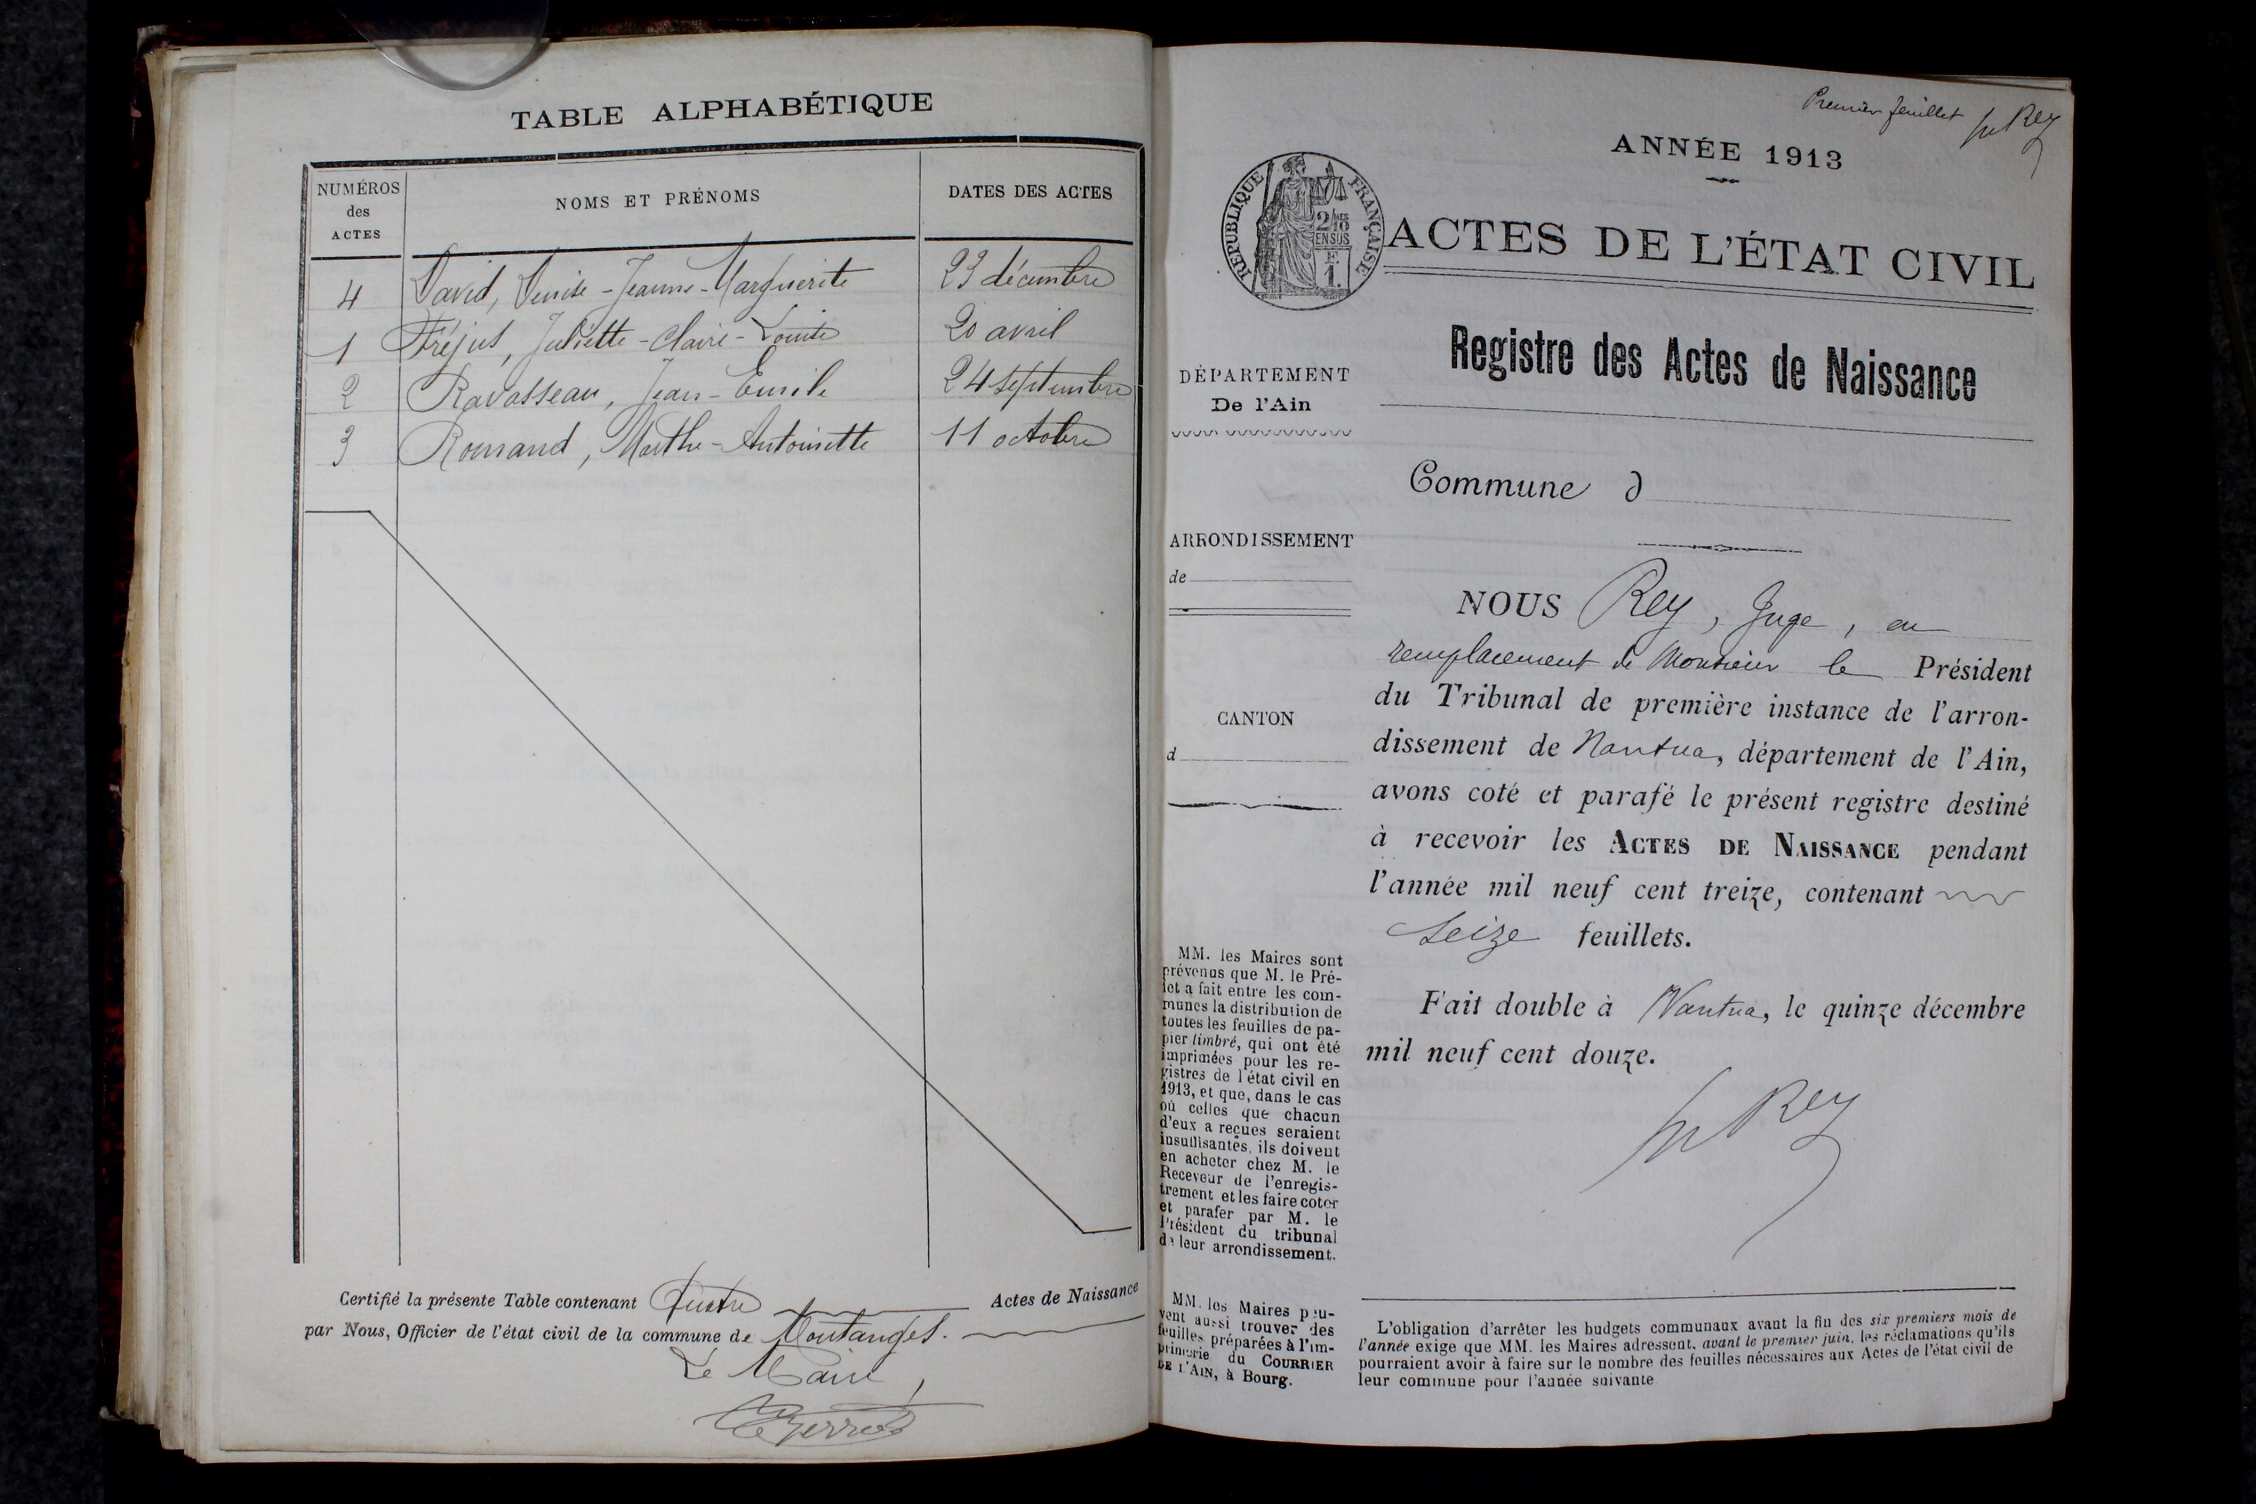 TABLE ALPHABÉTIQUE
NUMÉROS des ACTES
NOMS ET PRÉNOMS
DATES DES ACTES
4 David, Denise-Jeanne-Marguerite 23 décembre
1 Fréjus, Juliette-Claire-Louise 20 avril
2 Ravasseau, Jean-Emile 24 septembre
3 Romand, Marthe-Antoinette 11 octobre
Certifié la présente Table contenant Quatre Actes de Naissance
par Nous, Officier de l'état civil de la commune de Montanges.
Le Maire,
Premier feuillet
Rey
ANNÉE 1913
RÉPUBLIQUE FRANÇAISE
2/10 EN SUS
F
1.
ACTES DE L'ÉTAT CIVIL
Registre des Actes de Naissance
DÉPARTEMENT
De l'Ain
Commune d
ARRONDISSEMENT
de
CANTON
d
NOUS Rey, Juge, en
remplacement de Monsieur le Président
du Tribunal de première instance de l'arron-
dissement de Nantua, département de l'Ain,
avons coté et parafé le présent registre destiné
à recevoir les ACTES DE NAISSANCE pendant
l'année mil neuf cent treize, contenant
seize feuillets.
Fait double à Nantua, le quinze décembre
mil neuf cent douze.
Rey
MM. les Maires sont
prévenus que M. le Pré-
fet a fait entre les com-
munes la distribution de
toutes les feuilles de pa-
pier timbré, qui ont été
imprimées pour les re-
gistres de l'état civil en
1913, et que, dans le cas
où celles que chacun
d'eux a reçues seraient
insuffisantes, ils doivent
en acheter chez M. le
Receveur de l'enregis-
trement et les faire coter
et parafer par M. le
Président du tribunal
de leur arrondissement.
MM. les Maires peu-
vent aussi trouver des
feuilles préparées à l'im-
primerie du COURRIER
DE L'AIN, à Bourg.
L'obligation d'arrêter les budgets communaux avant la fin des six premiers mois de
l'année exige que MM. les Maires adressent, avant le premier juin, les réclamations qu'ils
pourraient avoir à faire sur le nombre des feuilles nécessaires aux Actes de l'état civil de
leur commune pour l'année suivante